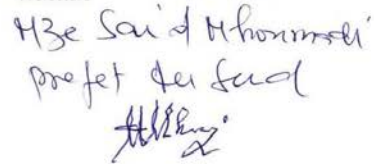 Mze Said Mhoumadi
prefet du Sud